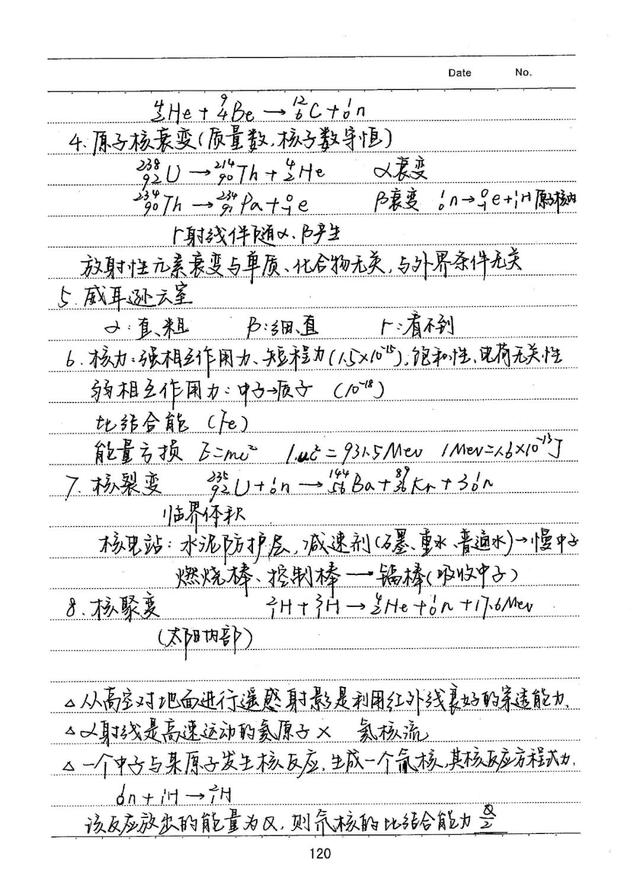 Date No.
⁴₂He + ⁹₄Be → ¹²₆C + ¹₀n
4. 原子核衰变(质量数,核子数守恒)
²³⁸₉₂U → ²¹⁴₉₀Th + ⁴₂He α衰变
²³⁴₉₀Th → ²³⁴₉₁Pa + ⁰₋₁e β衰变 ¹₀n → ⁰₋₁e + ¹₁H 原子核内
r射线伴随α、β产生
放射性元素衰变与单质、化合物无关,与外界条件无关
5. 威耳逊云室
α:直、粗 β:细、直 r:看不到
6. 核力:强相互作用力、短程力(1.5×10⁻¹⁵),饱和性、电荷无关性
弱相互作用力:中子→质子 (10⁻¹⁸)
比结合能 (Fe)
能量亏损 E=mc² 1uc²=931.5Mev 1Mev=1.6×10⁻¹³J
7. 核裂变 ²³⁵₉₂U + ¹₀n → ¹⁴⁴₅₆Ba + ⁸⁹₃₆Kr + 3¹₀n
临界体积
核电站:水泥防护层,减速剂(石墨、重水、普通水)→慢中子
燃烧棒、控制棒 → 镉棒(吸收中子)
8. 核聚变 ²₁H + ³₁H → ⁴₂He + ¹₀n + 17.6Mev
(太阳内部)
△从高空对地面进行遥感射影是利用红外线良好的穿透能力.
△α射线是高速运动的氦原子 × 氦核流
△一个中子与某原子发生核反应,生成一个氘核,其核反应方程式为.
¹₀n + ¹₁H → ²₁H
该反应放出的能量为Q,则氘核的比结合能为 Q/2
120